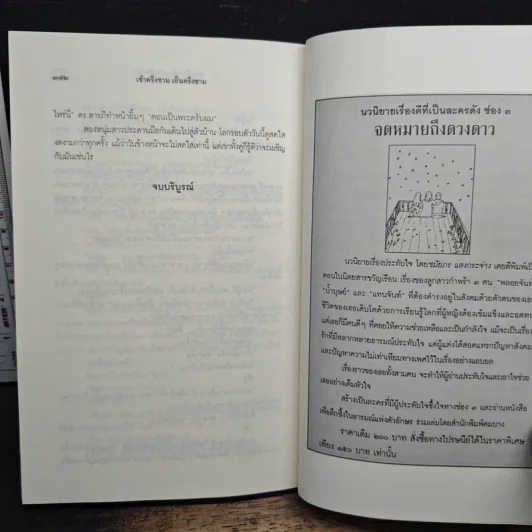 ๓๗๒
เช้าครึ่งชาม เย็นครึ่งชาม
ไหร่นี่" ดร.สารภีทำหน้ายิ้มๆ "ตอนเป็นพระครับผม"
สองหนุ่มสาวประสานมือกันเดินไปสู่ตัวบ้าน โลกรอบตัววันนี้ดูสดใส
งดงามกว่าทุกครั้ง แม้ว่าวันข้างหน้าจะไม่สดใสเท่านี้ แต่เขาทั้งคู่ก็รู้ดีว่าจะเผชิญ
กับมันเช่นไร
จบบริบูรณ์
นวนิยายเรื่องดีที่เป็นละครดัง ช่อง ๓
จดหมายถึงดวงดาว
นวนิยายเรื่องประทับใจ โดยชมัยภร แสงกระจ่าง เคยตีพิมพ์เป็น
ตอนในนิตยสารขวัญเรือน เรื่องของลูกสาวกำพร้า ๓ คน "พลอยจันท์
"น้ำบุษย์" และ "แทนจันท์" ที่ต้องดำรงอยู่ในสังคมด้วยตัวตนของเธอ
ชีวิตของเธอเติบโตด้วยการเรียนรู้โลกที่ผู้หญิงต้องเข้มแข็งและอดทน
แต่เธอก็มีคนดีๆ ที่คอยให้ความช่วยเหลือและเป็นกำลังใจ แม้จะเป็นเรื่อง
รักที่มีหลากหลายอารมณ์ประทับใจ แต่ผู้แต่งได้สอดแทรกปัญหาสังคม
และปัญหาความไม่เท่าเทียมทางเพศไว้ในเรื่องอย่างแยบยล
เรื่องราวของเธอทั้งสามคน จะทำให้ผู้อ่านประทับใจและเอาใจช่วย
เธออย่างเต็มหัวใจ
สร้างเป็นละครที่มีผู้ประทับใจซึ้งใจทางช่อง ๓ และอ่านหนังสือ
เพื่อลึกซึ้งในอารมณ์แห่งตัวอักษร รวมเล่มโดยสำนักพิมพ์คมบาง
ราคาเต็ม ๒๐๐ บาท สั่งซื้อทางไปรษณีย์ได้ในราคาพิเศษ
เพียง ๑๕๐ บาท เท่านั้น